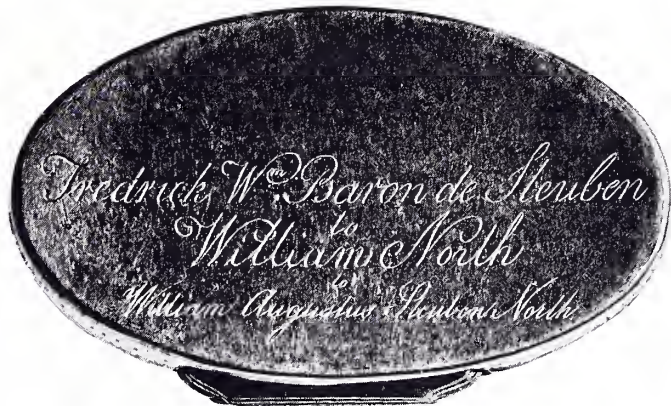 Fredrick Wm. Baron de Steuben
to
William North
to
William Augustus Steuben North